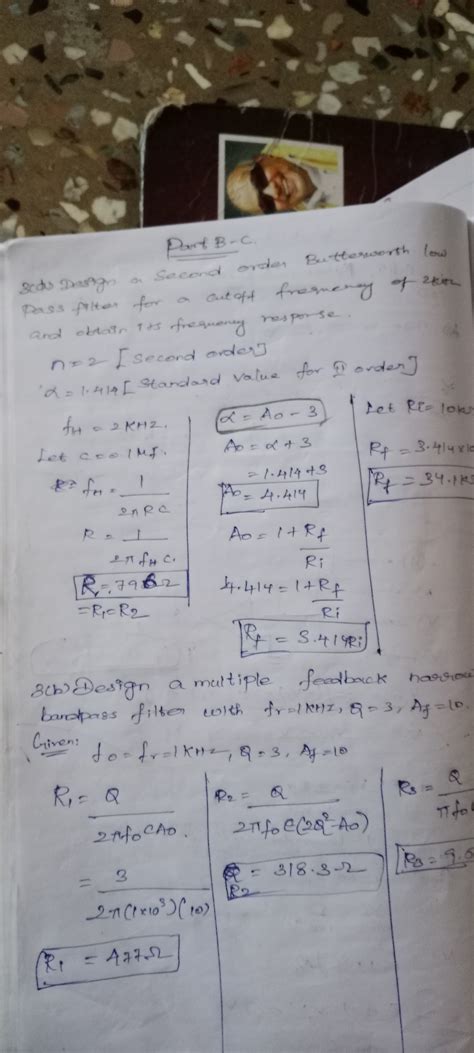 Part B-C.
8(a) Design a Second order Butterworth low
pass filter for a cutoff frequency of 2KHz
and obtain its frequency response.
n=2 [Second order]
α=1.414 [Standard Value for II order]
fH = 2KHZ.
Let C=0.1Mf.
fH = 1/2πRC
R = 1/2πfHC.
R = 796Ω
=R1=R2
α = A0 - 3
A0 = α+3
=1.414+3
A0 = 4.414
A0 = 1+Rf/Ri
4.414 = 1+Rf/Ri
Rf = 3.414Ri
Let Ri=10K
Rf = 3.414x10
Rf = 34.1K
8(b) Design a multiple feedback narrow
bandpass filter with fr=1KHZ, Q=3, Af=10.
Given:
f0 = fr=1KHZ, Q=3, Af=10
R1 = Q/2πf0CA0.
= 3/2π(1x10³)(10)
R1 = 477Ω
R2 = Q/2πf0C(2Q²-A0)
R2 = 318.3Ω
R3 = Q/πf0
R3 = 9.5